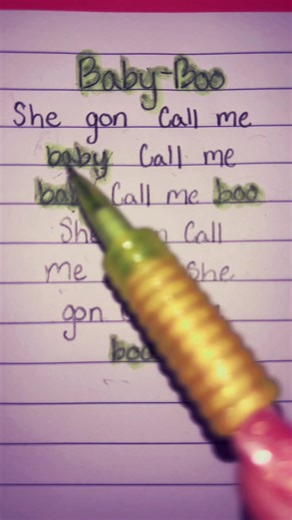 Baby-Boo
She gon Call me
baby Call me
Call me boo
Call
me She
gon
boo